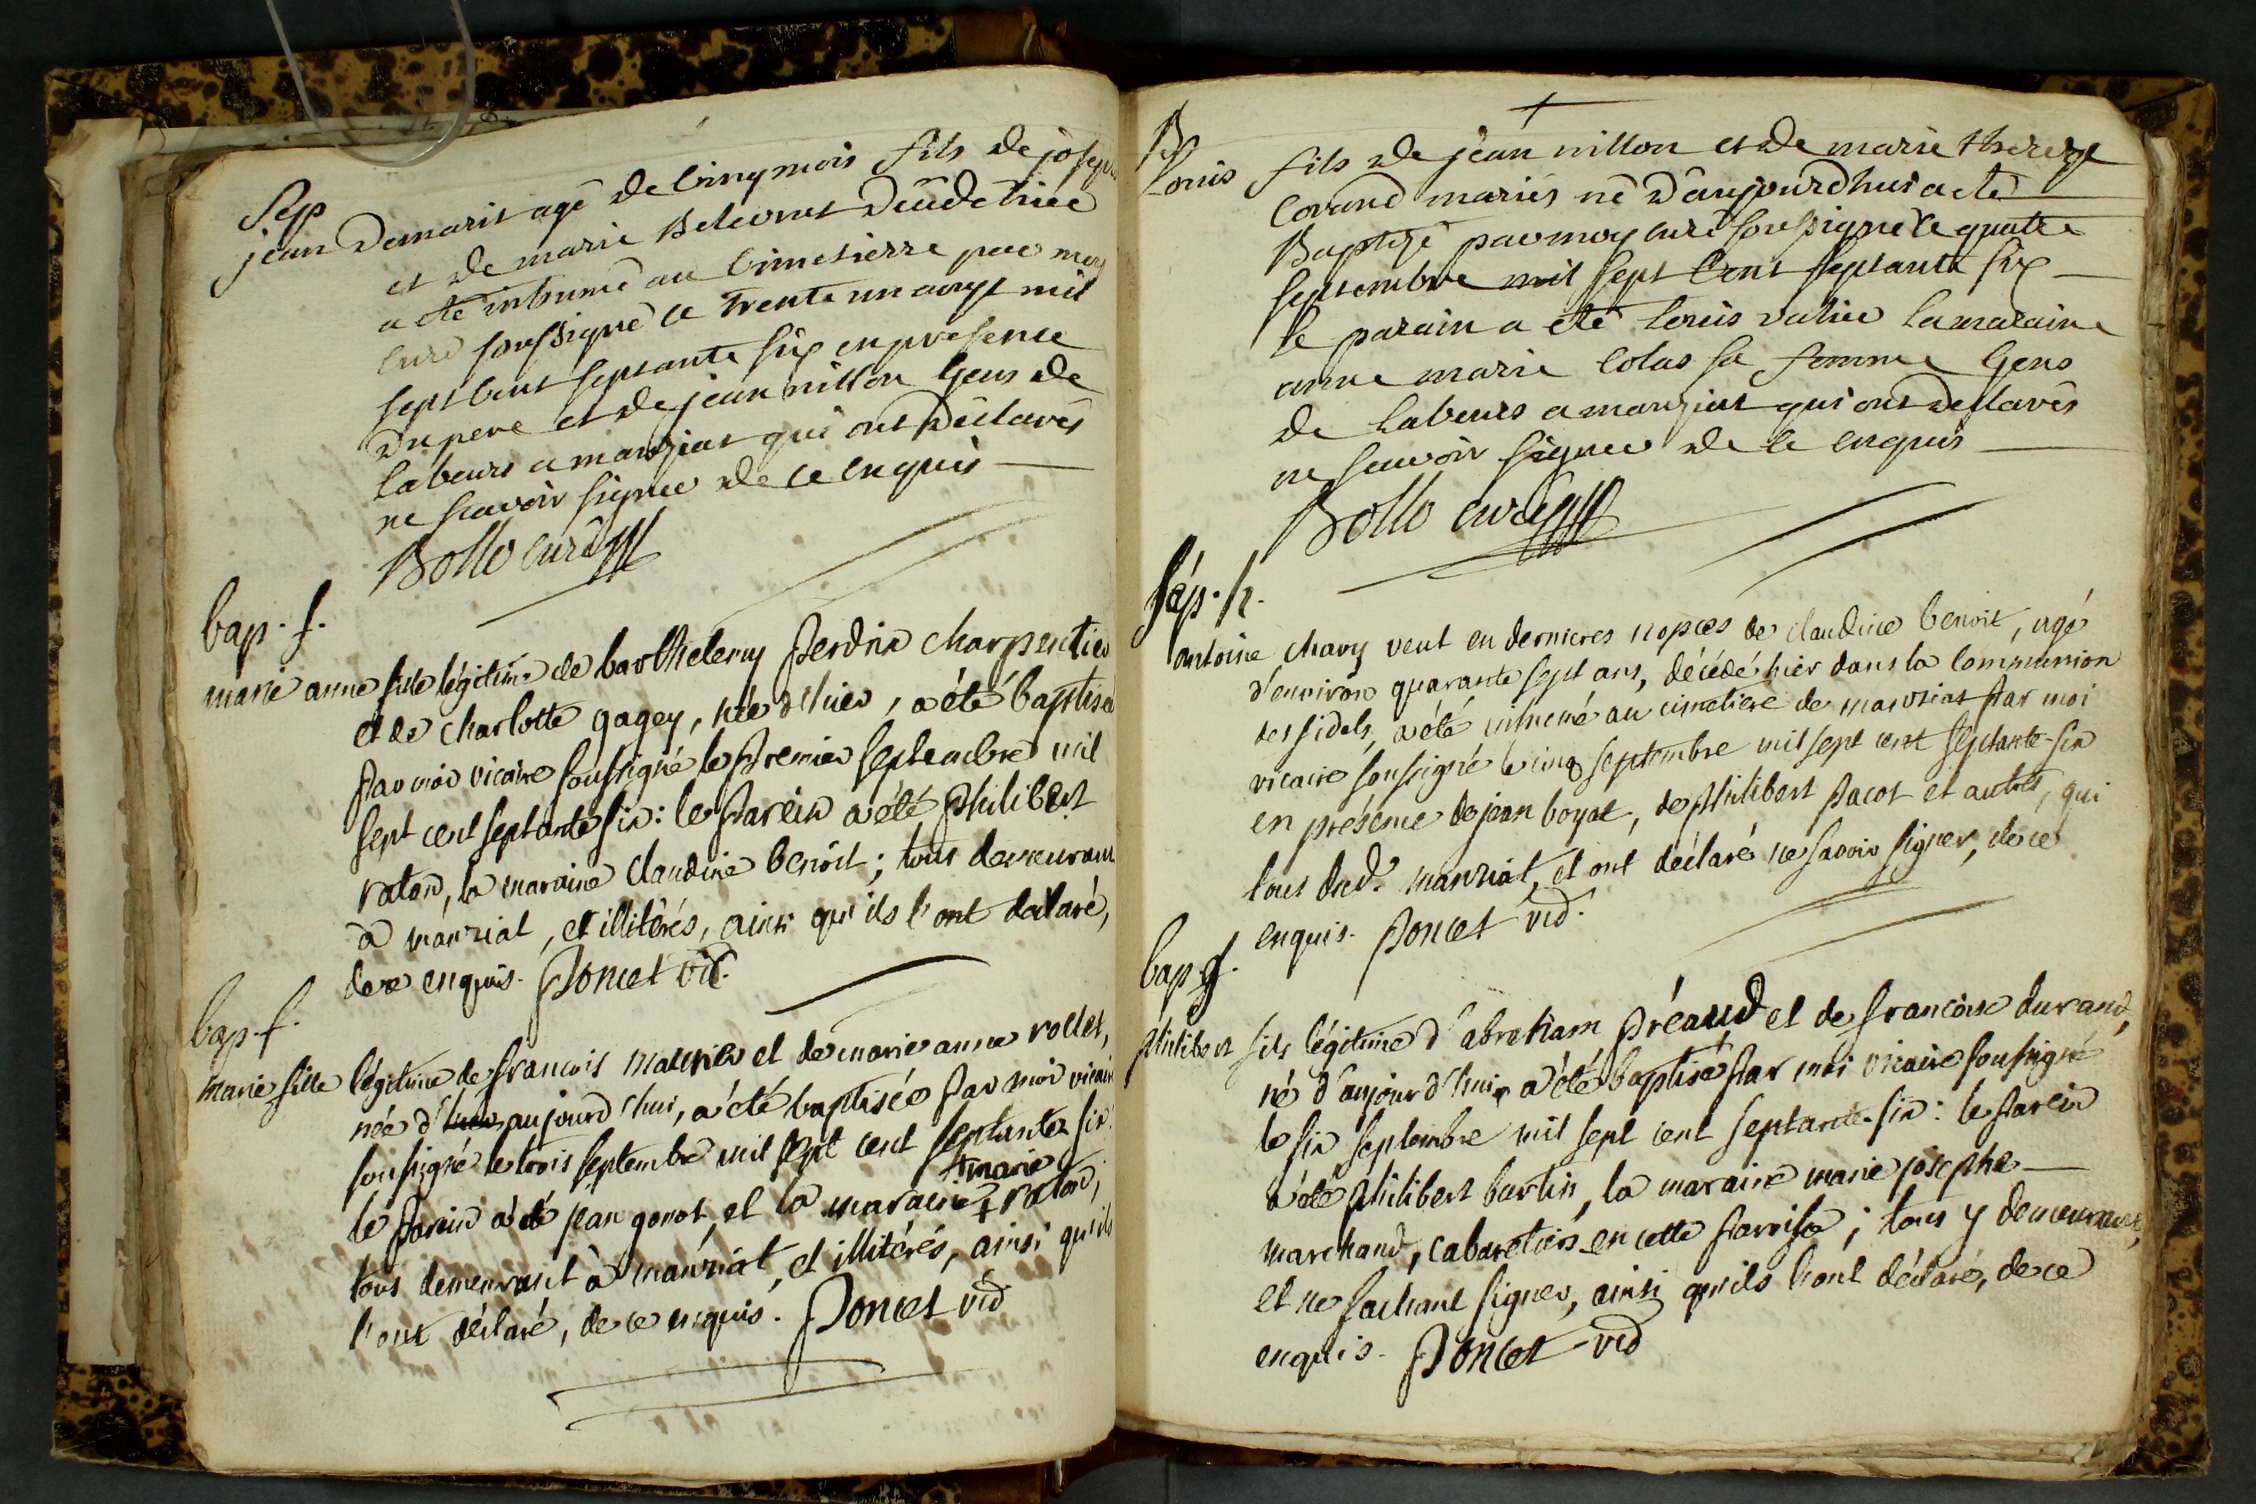 Sep
jean Demaris agé de Cinq mois fils de joseph
et de marie
a été inhumé au Cimetierre par moy
curé soussigné le trente un aoust mil
sept Cent septante six en presence
Du pere et de jean nillon Gens de
Labeurs a manziat qui ont Déclarés
ne scavoir signer de ce enquis
Bollo curé
bap. f.
marie anne fille légitime de barthelemy perdrix charpentier
et de charlotte gagey, née d'hier, a été baptisée
par moi vicaire soussigné le premier septembre mil
sept cent septante six: le parein a été philibert
raton, la maraine claudine benoit; tous demeurant
à manziat, et illitérés, ainsi qu'ils l'ont déclaré,
de ce enquis. Poncet vic.
bap. f.
marie fille légitime de francois maurier et de marie anne rollet,
née d'hier aujourd'hui, a été baptisée par moi vicaire
soussigné le trois septembre mil sept cent septante six.
le parein a été jean gonot, et la maraine + raton,
+ marie
tous demeurant à manziat, et illitérés, ainsi qu'ils
l'ont déclaré, de ce enquis. Poncet vic
+
B
Louis fils de jean nillon et de marie therese
Corand mariés né D'aujourdhui a été
Baptizé par moy curé soussigné le quatre
septembre mil sept Cent septante six
le parain a été Louis valier la maraine
anne marie Colas sa femme Gens
de Labeurs a manziat qui ont declarés
ne scavoir signer de ce enquis
Bollo curé
sép. h.
antoine chavy veuf en dernieres nopces de claudine benoit, agé
d'environ quarante sept ans, décédé hier dans la communion
des fidels, a été inhumé au cimetiere de manziat par moi
vicaire soussigné le cinq septembre mil sept cent septante-six
en présence de jean boyat, de philibert pacot et autres, qui
tous dud. manziat, et ont déclaré ne savoir signer, de ce
enquis. Poncet vic.
bap. g.
philibert fils légitime d'abraham préaud et de francoise durand,
né d'aujourd'hui a été baptisé par moi vicaire soussigné
le six septembre mil sept cent septante-six: le parein
a été philibert burtin, la maraine marie josephe
marchand, cabaretiers en cette parroisse; tous y demeurant,
et ne sachant signer, ainsi qu'ils l'ont déclaré, de ce
enquis. Poncet vic